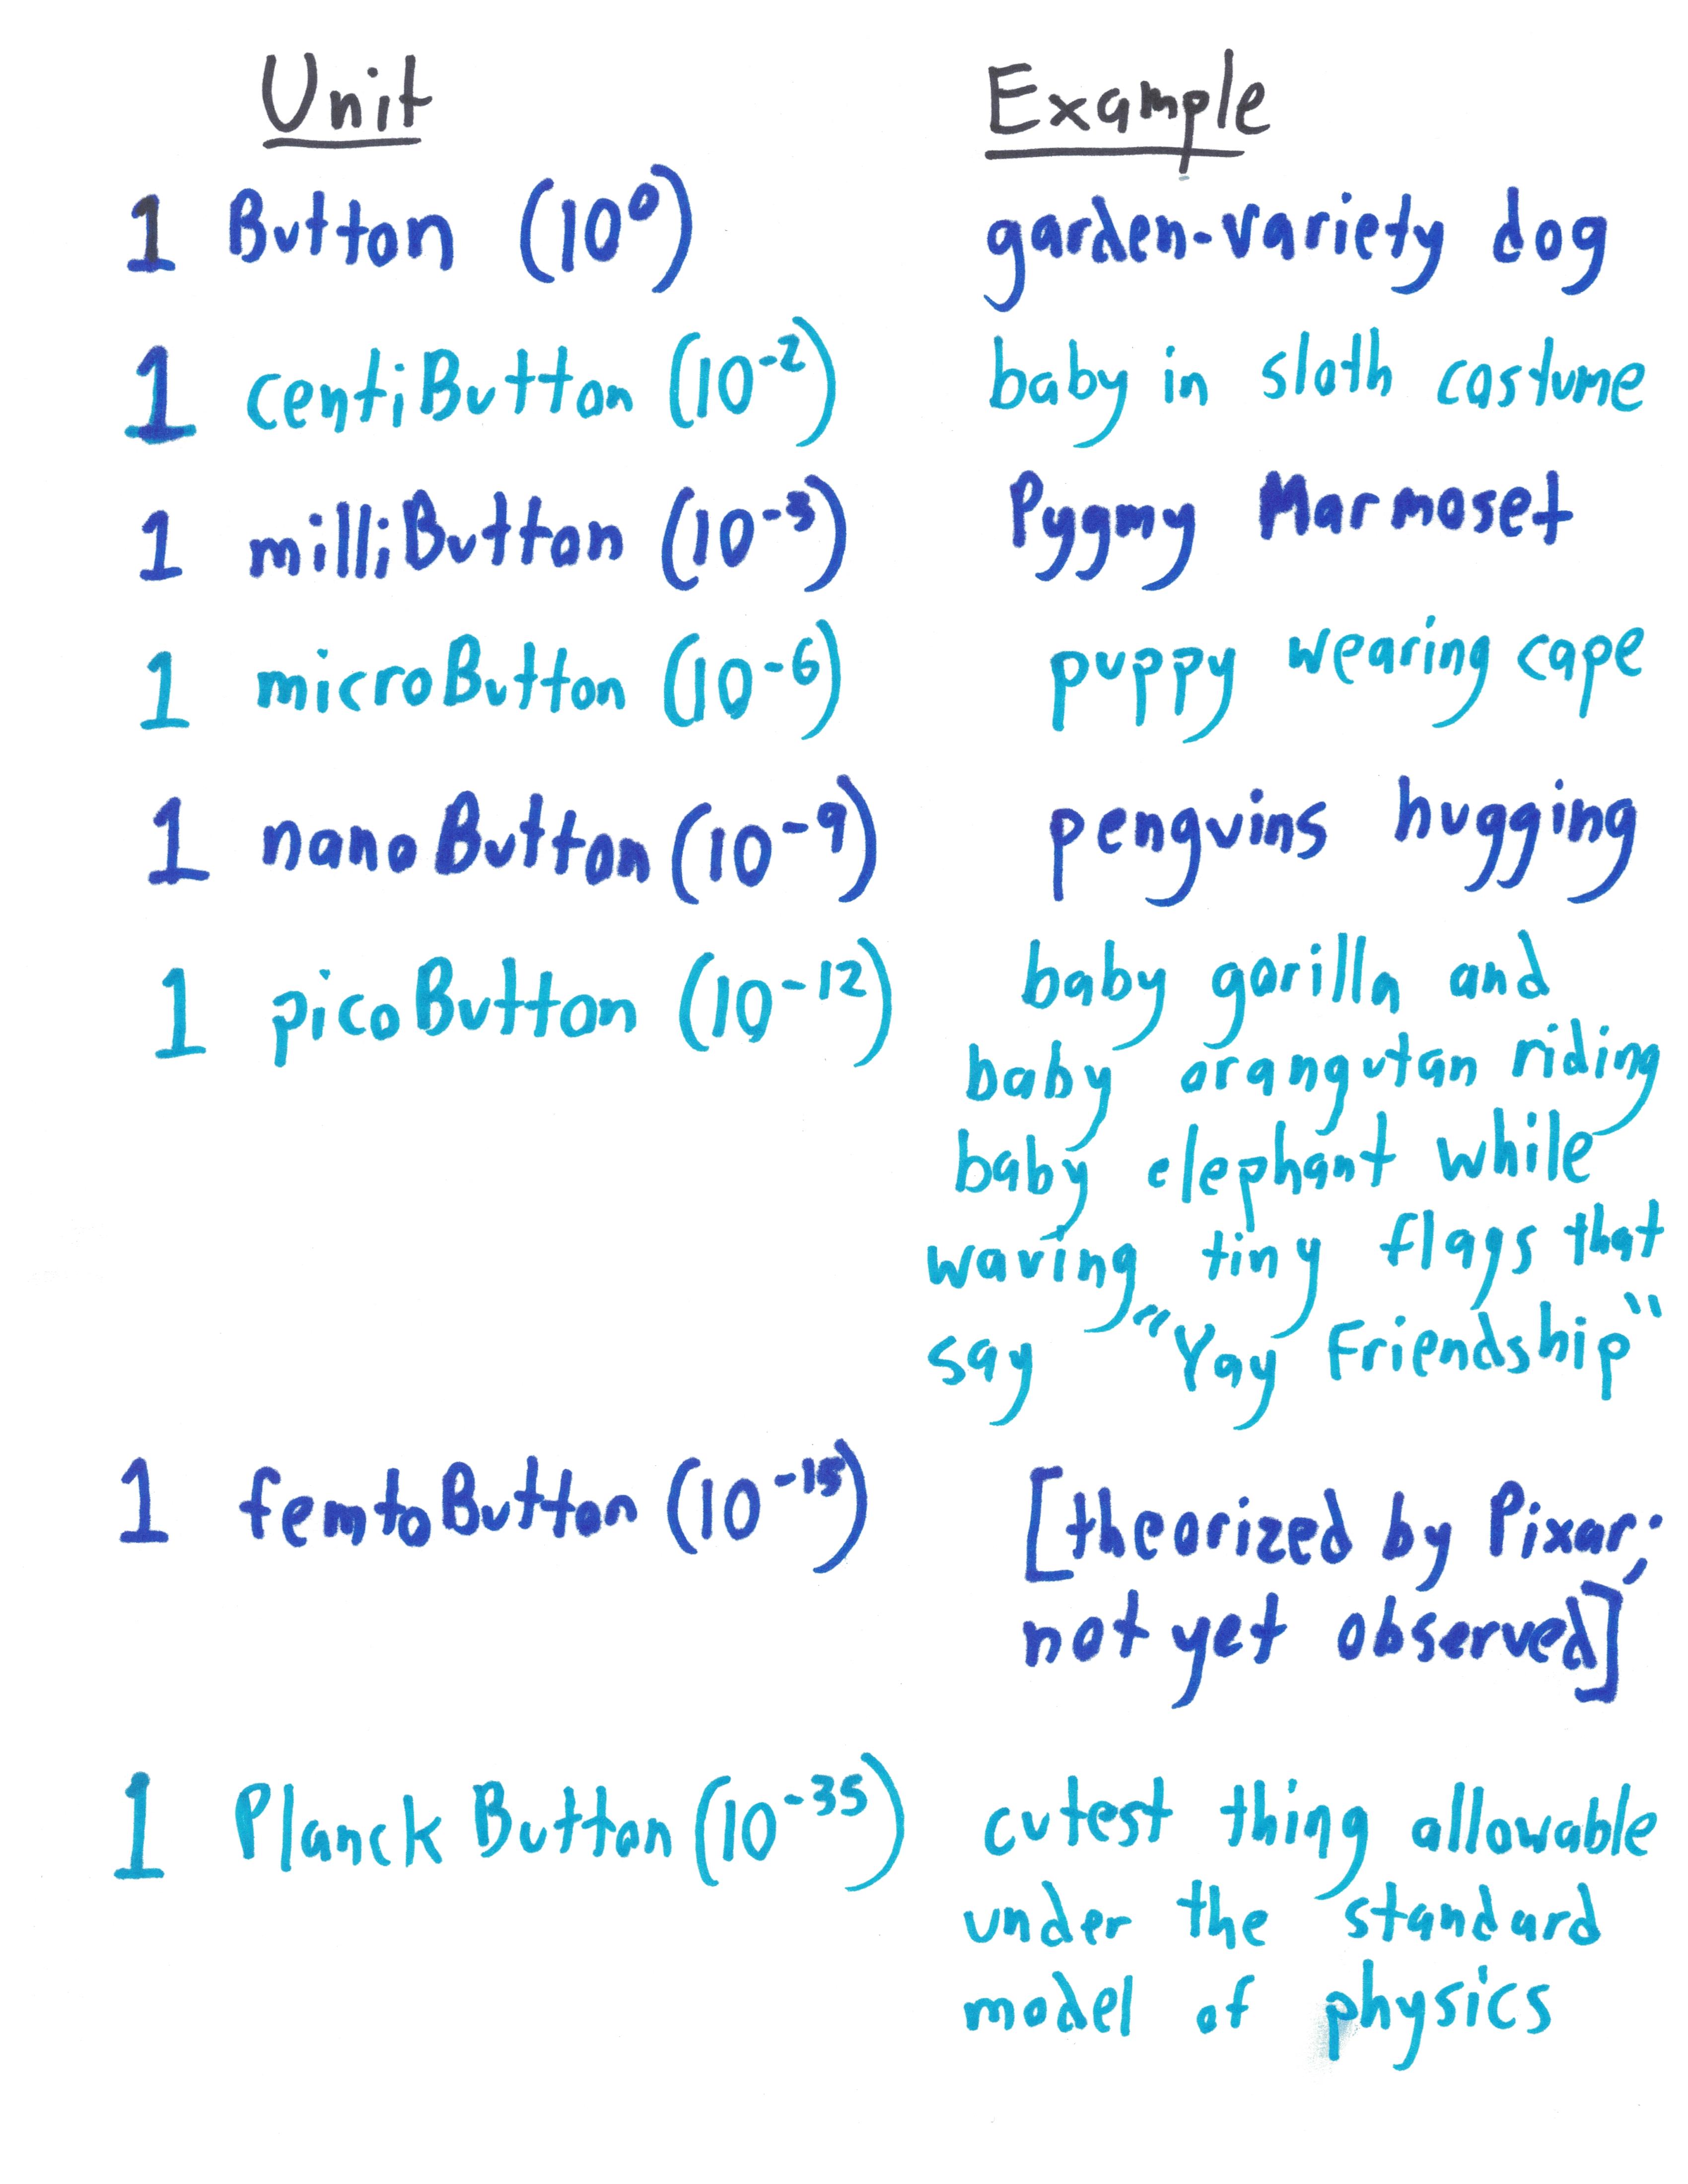 Unit Example
1 Button (10⁰) garden-variety dog
1 centiButton (10⁻²) baby in sloth costume
1 milliButton (10⁻³) Pygmy Marmoset
1 microButton (10⁻⁶) puppy wearing cape
1 nanoButton (10⁻⁹) penguins hugging
1 picoButton (10⁻¹²) baby gorilla and
baby orangutan riding
baby elephant while
waving tiny flags that
say "Yay Friendship"
1 femtoButton (10⁻¹⁵) [theorized by Pixar;
not yet observed]
1 Planck Button (10⁻³⁵) cutest thing allowable
under the standard
model of physics